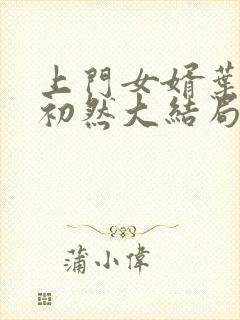 上門女婿葉
初然大結局
蒲小偉